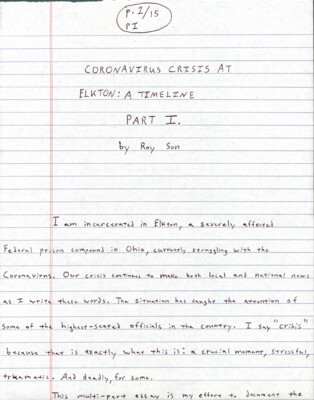 P. 1/15
PI
CORONAVIRUS CRISIS AT
ELKTON: A TIMELINE
PART I.
by Roy Son
I am incarcerated in Elkton, a severely affected
Federal prison compound in Ohio, currently struggling with the
Coronavirus. Our crisis continues to make both local and national news
as I write these words. The situation has caught the attention of
some of the highest-seated officials in the country. I say "crisis"
because that is exactly what this is: a crucial moment, stressful,
traumatic. And deadly, for some.
This multi-part essay is my effort to document the